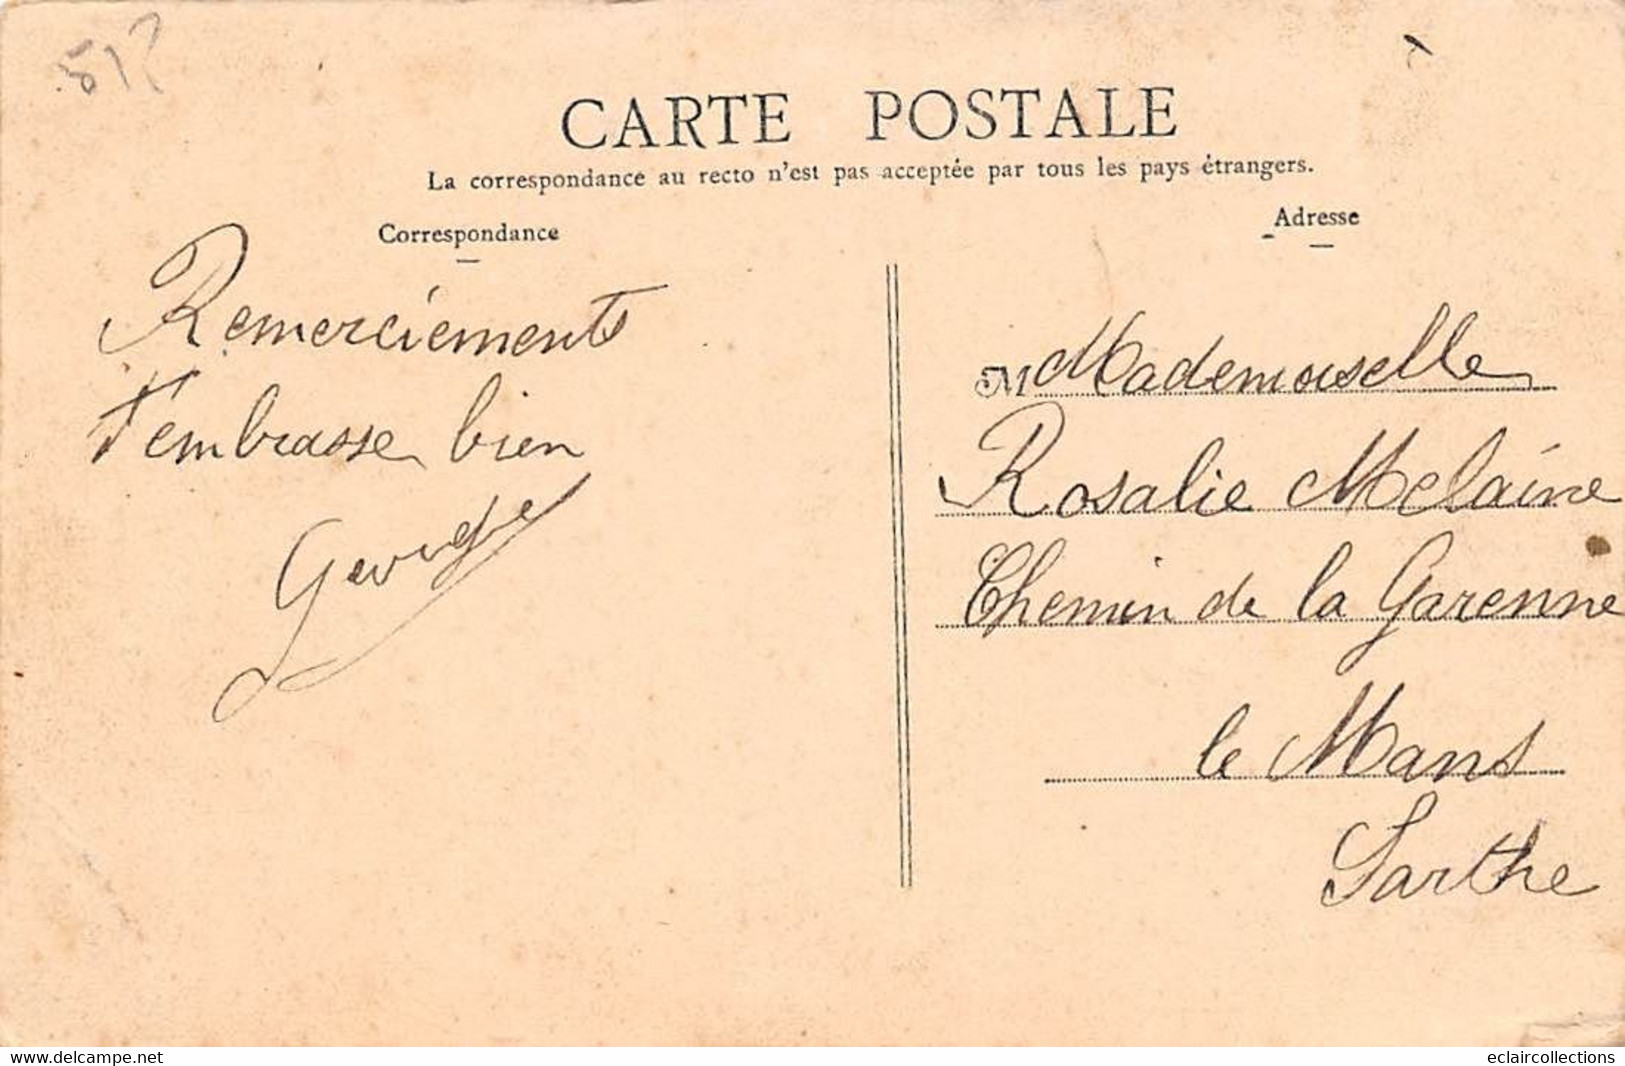 51?
CARTE POSTALE
La correspondance au recto n'est pas acceptée par tous les pays étrangers.
Correspondance
Adresse
Remerciements
t'embrasse bien
George
M Mademoiselle
Rosalie Melaine
Chemin de la Garenne
le Mans
Sarthe
www.delcampe.net
eclaircollections